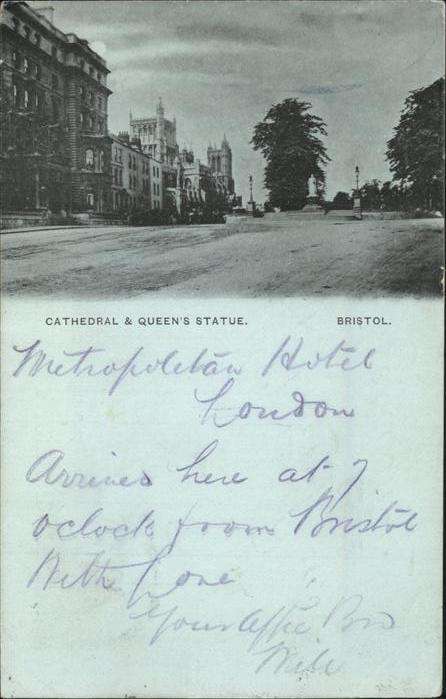 CATHEDRAL & QUEEN'S STATUE. BRISTOL.
Metropolitan Hotel
London
Arrived here at 7
oclock from Bristol
With Love
Your Affie Bro
Will